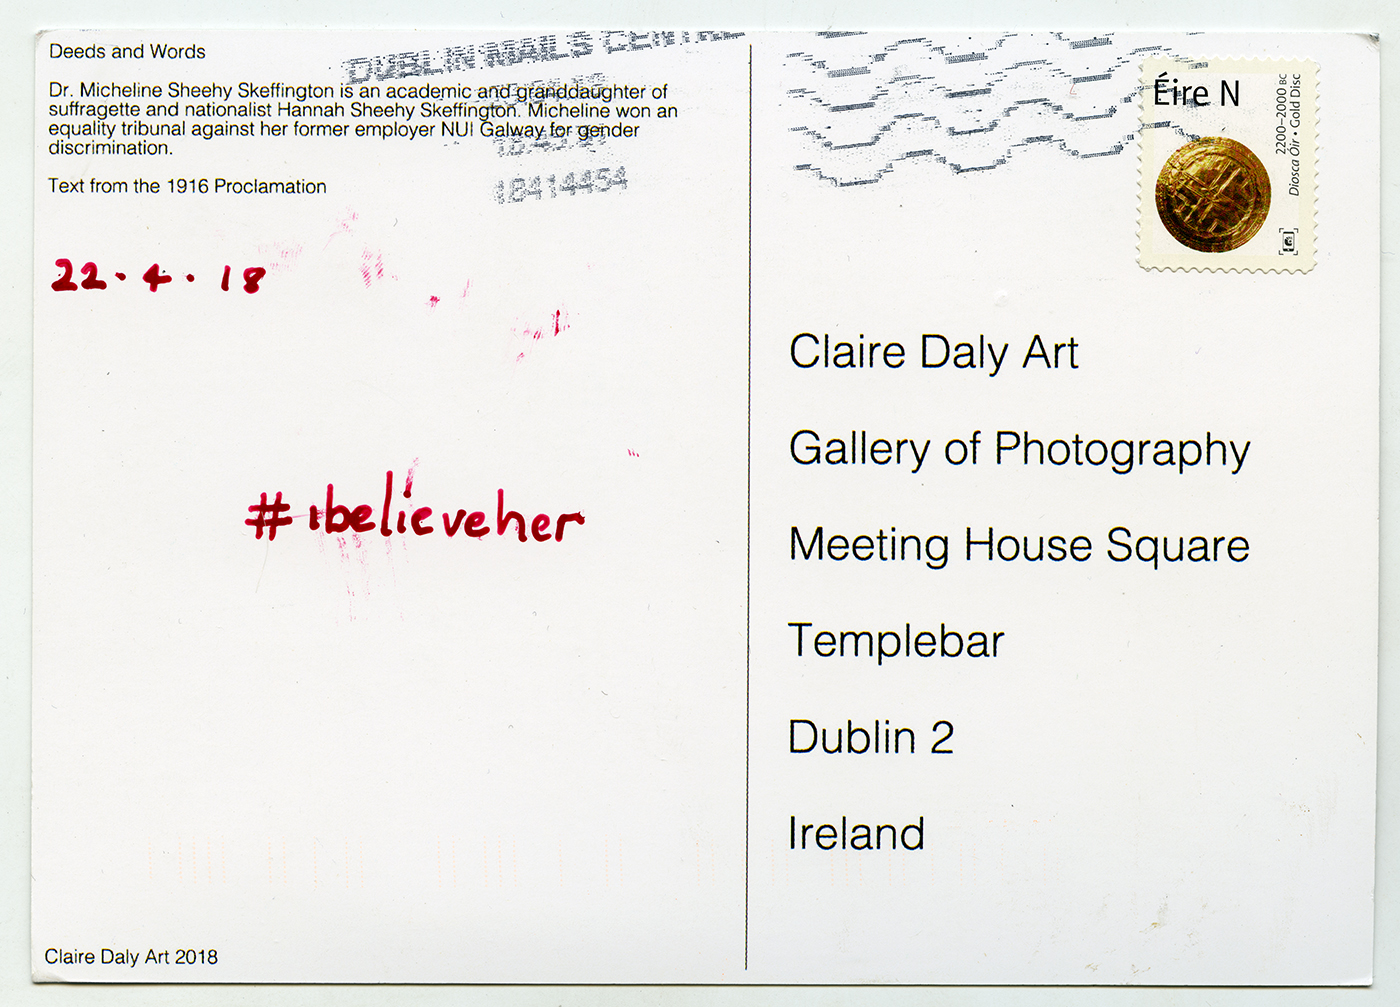 Deeds and Words
Dr. Micheline Sheehy Skeffington is an academic and granddaughter of
suffragette and nationalist Hannah Sheehy Skeffington. Micheline won an
equality tribunal against her former employer NUI Galway for gender
discrimination.
Text from the 1916 Proclamation
DUBLIN MAILS CENTRE
18414454
22·4·18
#ibelieveher
Claire Daly Art 2018
Éire N
2200–2000 BC
Diosca Óir • Gold Disc
Claire Daly Art
Gallery of Photography
Meeting House Square
Templebar
Dublin 2
Ireland